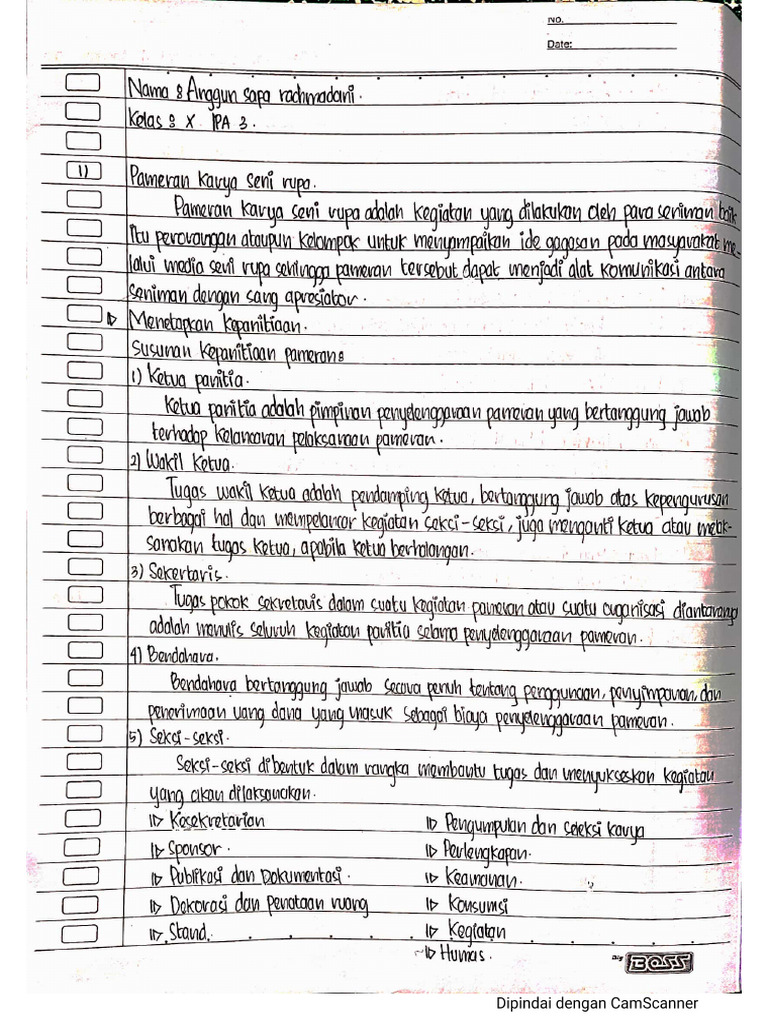 No.
Date:
Nama : Anggun sapa rachmadani.
Kelas : X IPA 3.
1) Pameran Karya seni rupa.
Pameran Karya seni rupa adalah kegiatan yang dilakukan oleh para seniman baik
itu perorangan ataupun kelompok untuk menyampaikan ide gagasan pada masyarakat me-
lalui media seni rupa sehingga pameran tersebut dapat menjadi alat komunikasi antara
seniman dengan sang apresiator.
▷ Menetapkan kepanitiaan.
Susunan kepanitiaan pameran :
1) Ketua panitia.
Ketua panitia adalah pimpinan penyelenggaraan pameran yang bertanggung jawab
terhadap kelancaran pelaksanaan pameran.
2) Wakil Ketua.
Tugas wakil ketua adalah pendamping ketua, bertanggung jawab atas kepengurusan
berbagai hal dan memperlancar kegiatan seksi-seksi, juga menganti ketua atau melak-
sanakan tugas ketua, apabila ketua berhalangan.
3) Sekertaris.
Tugas pokok sekretaris dalam suatu kegiatan pameran atau suatu organisasi diantaranya
adalah menulis seluruh kegiatan panitia selama penyelenggaraan pameran.
4) Bendahara.
Bendahara bertanggung jawab secara penuh tentang penggunaan, penyimpanan, dan
penerimaan uang dana yang masuk sebagai biaya penyelenggaraan pameran.
5) Seksi-seksi.
Seksi-seksi dibentuk dalam rangka membantu tugas dan menyukseskan kegiatan
yang akan dilaksanakan.
▷ Kesekretarian
▷ Sponsor.
▷ Publikasi dan Dokumentasi.
▷ Dekorasi dan penataan ruang
▷ Stand.
▷ Pengumpulan dan seleksi karya
▷ Perlengkapan.
▷ Keamanan.
▷ Konsumsi
▷ Kegiatan
▷ Humas.
Big BOSS
Dipindai dengan CamScanner